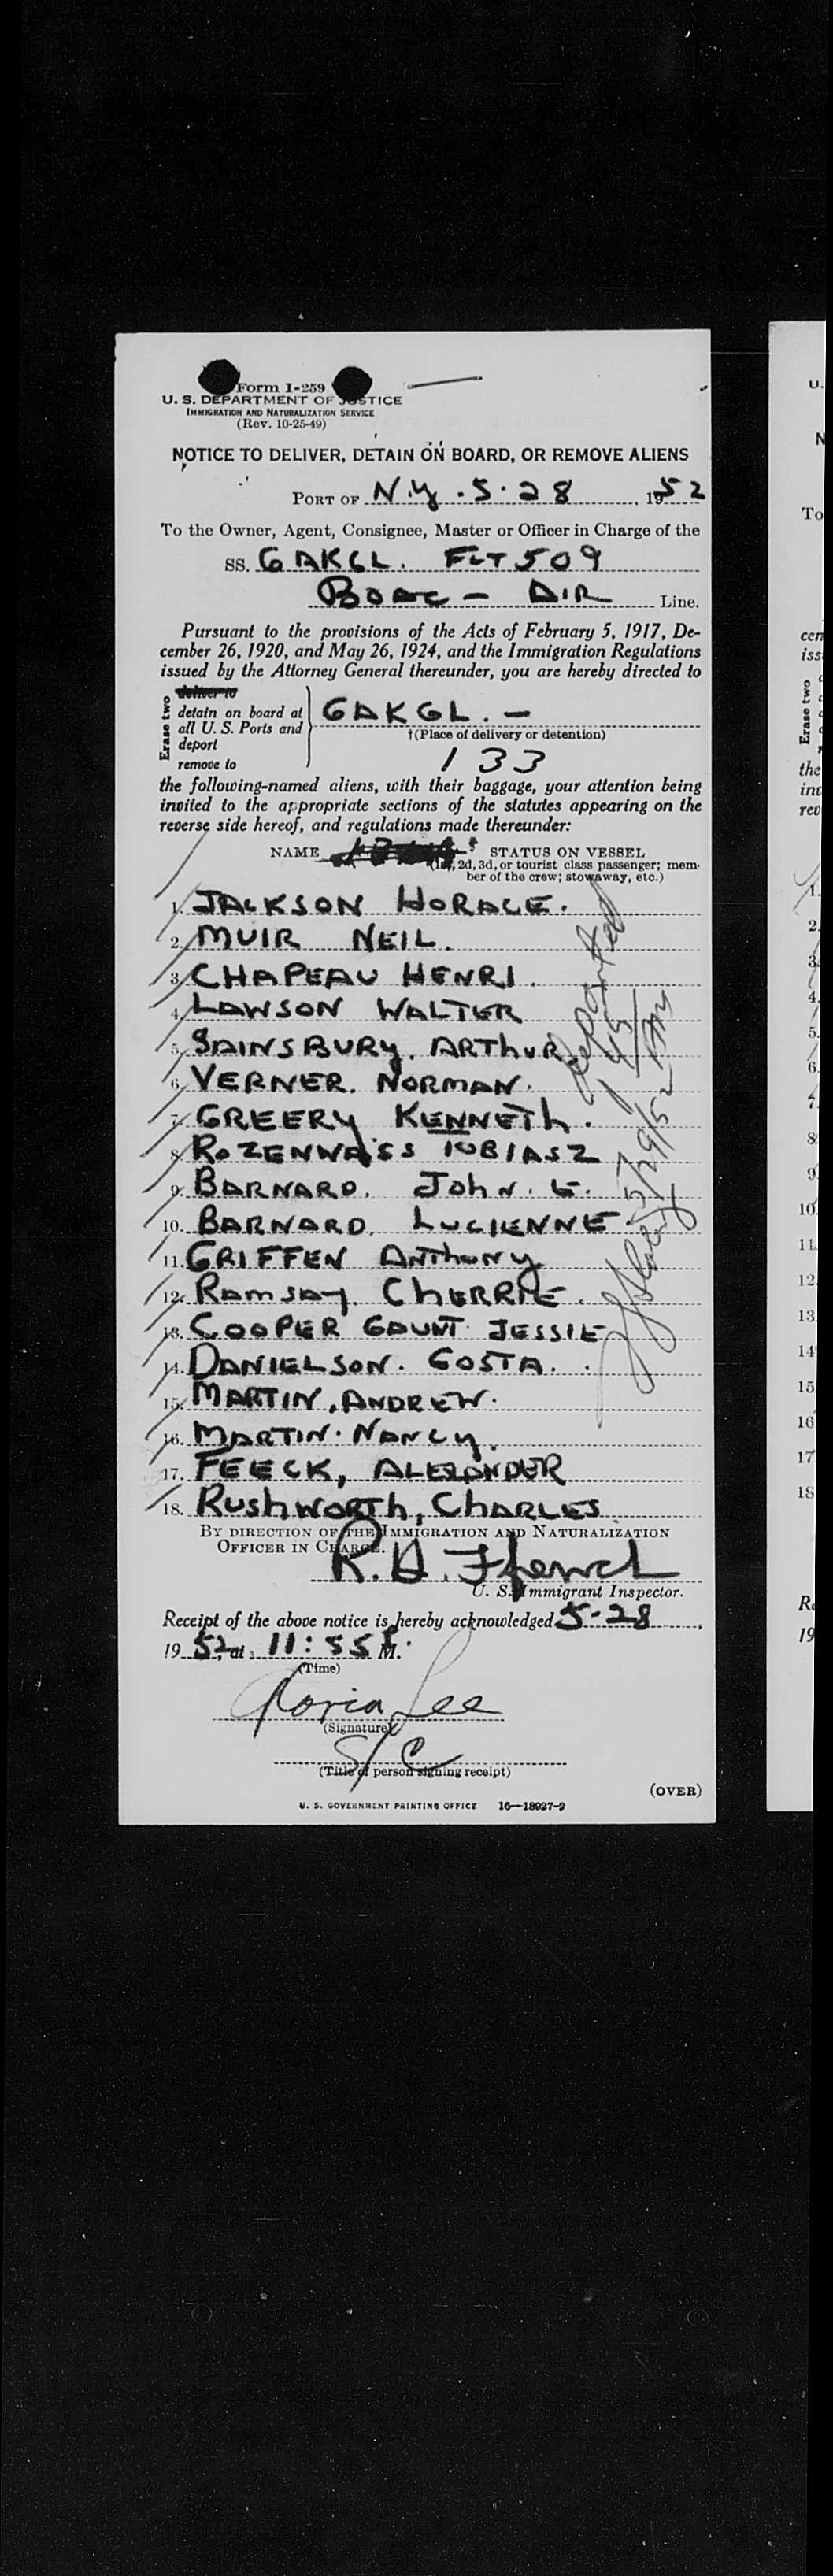 Form I-259
U. S. DEPARTMENT OF JUSTICE
IMMIGRATION AND NATURALIZATION SERVICE
(Rev. 10-25-49)
NOTICE TO DELIVER, DETAIN ON BOARD, OR REMOVE ALIENS
PORT OF N.Y. 5.28, 1952
To the Owner, Agent, Consignee, Master or Officer in Charge of the
SS. GAKGL. FLT 509
BOAC - AIR Line.
Pursuant to the provisions of the Acts of February 5, 1917, De-
cember 26, 1920, and May 26, 1924, and the Immigration Regulations
issued by the Attorney General thereunder, you are hereby directed to
Erase two
deliver to
detain on board at
all U. S. Ports and
deport
remove to
GAKGL. -
†(Place of delivery or detention)
133
the following-named aliens, with their baggage, your attention being
invited to the appropriate sections of the statutes appearing on the
reverse side hereof, and regulations made thereunder:
NAME STATUS ON VESSEL
(1st, 2d, 3d, or tourist class passenger; mem-
ber of the crew; stowaway, etc.)
1. JACKSON HORACE.
2. MUIR NEIL.
3. CHAPEAU HENRI.
4. LAWSON WALTER
5. SAINSBURY. ARTHUR.
6. VERNER. NORMAN.
7. GREERY KENNETH.
8. ROZENWAISS TOBIASZ
9. BARNARD. JOHN. E.
10. BARNARD. LUCIENNE.
11. GRIFFEN ANTHONY
12. RAMSAY. CHERRIE.
13. COOPER GAUNT JESSIE
14. DANIELSON. GOSTA.
15. MARTIN, ANDREW.
16. MARTIN. NANCY.
17. FEECK, ALEXANDER
18. RUSHWORTH, CHARLES
departed
1 45
5/29/52 AM
BY DIRECTION OF THE IMMIGRATION AND NATURALIZATION
OFFICER IN CHARGE.
R. H. Ffrench
U. S. Immigrant Inspector.
Receipt of the above notice is hereby acknowledged 5-28,
1952, at 11:55 P.M.
(Time)
Gloria Lee
(Signature)
S/C
(Title of person signing receipt)
(OVER)
U. S. GOVERNMENT PRINTING OFFICE 16—18927-2
U.
N
To
cen
iss
Erase two
the
inv
rev
1.
2.
3.
4.
5.
6.
7.
8.
9.
10
11.
12.
13.
14
15
16
17
18
Re
19